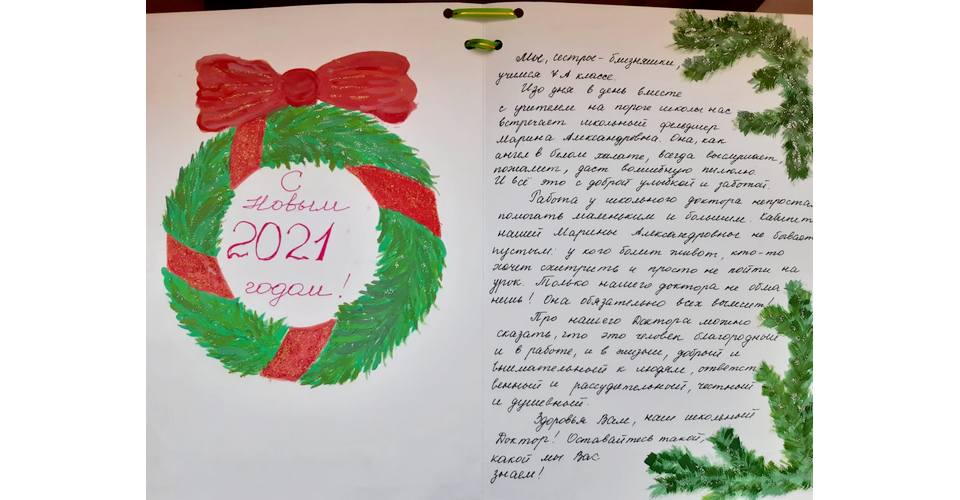 С
Новым
2021
годом!
Мы, сестры-близняшки,
учимся 4 А классе.
Изо дня в день вместе
с учителем на пороге школы нас
встречает школьный фельдшер
Марина Александровна. Она, как
ангел в белом халате, всегда выслушает,
пожалеет, даст волшебную пилюлю.
И всё это с доброй улыбкой и заботой.
Работа у школьного доктора непростая
помогать маленьким и большим. Кабинет
нашей Марины Александровны не бывает
пустым: у кого болит живот, кто-то
хочет схитрить и просто не пойти на
урок. Только нашего доктора не обма
нешь! Она обязательно всех вылечит!
Про нашего Доктора можно
сказать, что это человек благородный
и в работе, и в жизни, добрый и
внимательный к людям, ответст
венный и рассудительный, честный
и душевный.
Здоровья Вам, наш школьный
Доктор! Оставайтесь такой,
какой мы Вас
знаем!